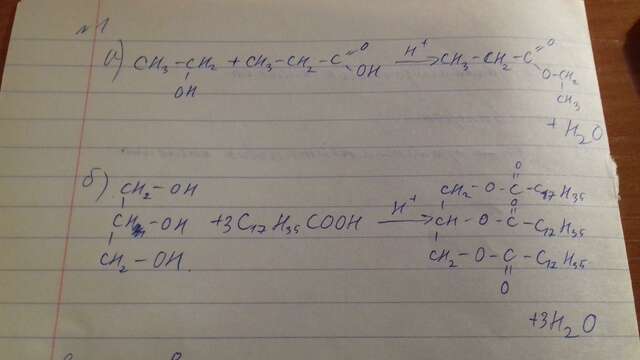 №1
а) CH₃-CH₂ + CH₃-CH₂-C=O H⁺→ CH₃-CH₂-C=O
OH OH O-CH₂
CH₃
+ H₂O
б) CH₂-OH O
CH-OH +3C₁₇H₃₅COOH H⁺→ CH₂-O-C-C₁₇H₃₅
O
CH-O-C-C₁₇H₃₅
CH₂-OH. CH₂-O-C-C₁₇H₃₅
O
+3H₂O